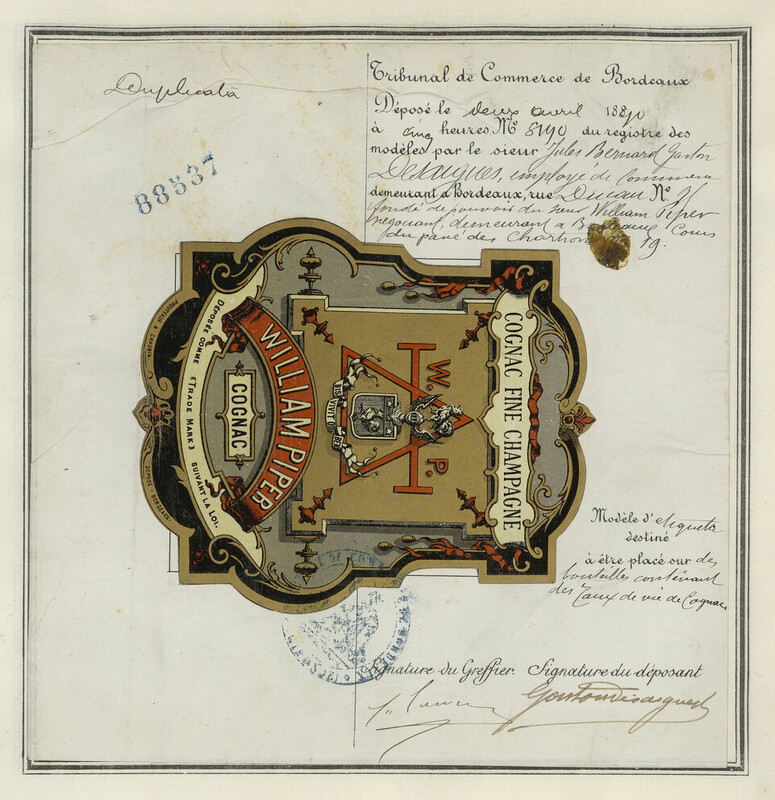 Duplicata
88537
Tribunal de Commerce de Bordeaux
Déposé le deux avril 1890
à cinq heures Nº 8190 du registre des
modèles par le sieur Jules Bernard Gaston
Desaigues, employé de Commerce
demeurant à Bordeaux, rue Nº
fondé de pouvoir du sieur William Piper
négociant, demeurant à Bordeaux Cours
du pavé des Chartrons 19.
COGNAC FINE CHAMPAGNE
W. P.
WILLIAM PIPER
COGNAC
DÉPOSÉE COMME (TRADE MARK) SUIVANT LA LOI.
Modèle d'etiquette
destiné
à être placé sur des
bouteilles contenant
des Eaux de vie de Cognac.
Signature du Greffier. Signature du déposant